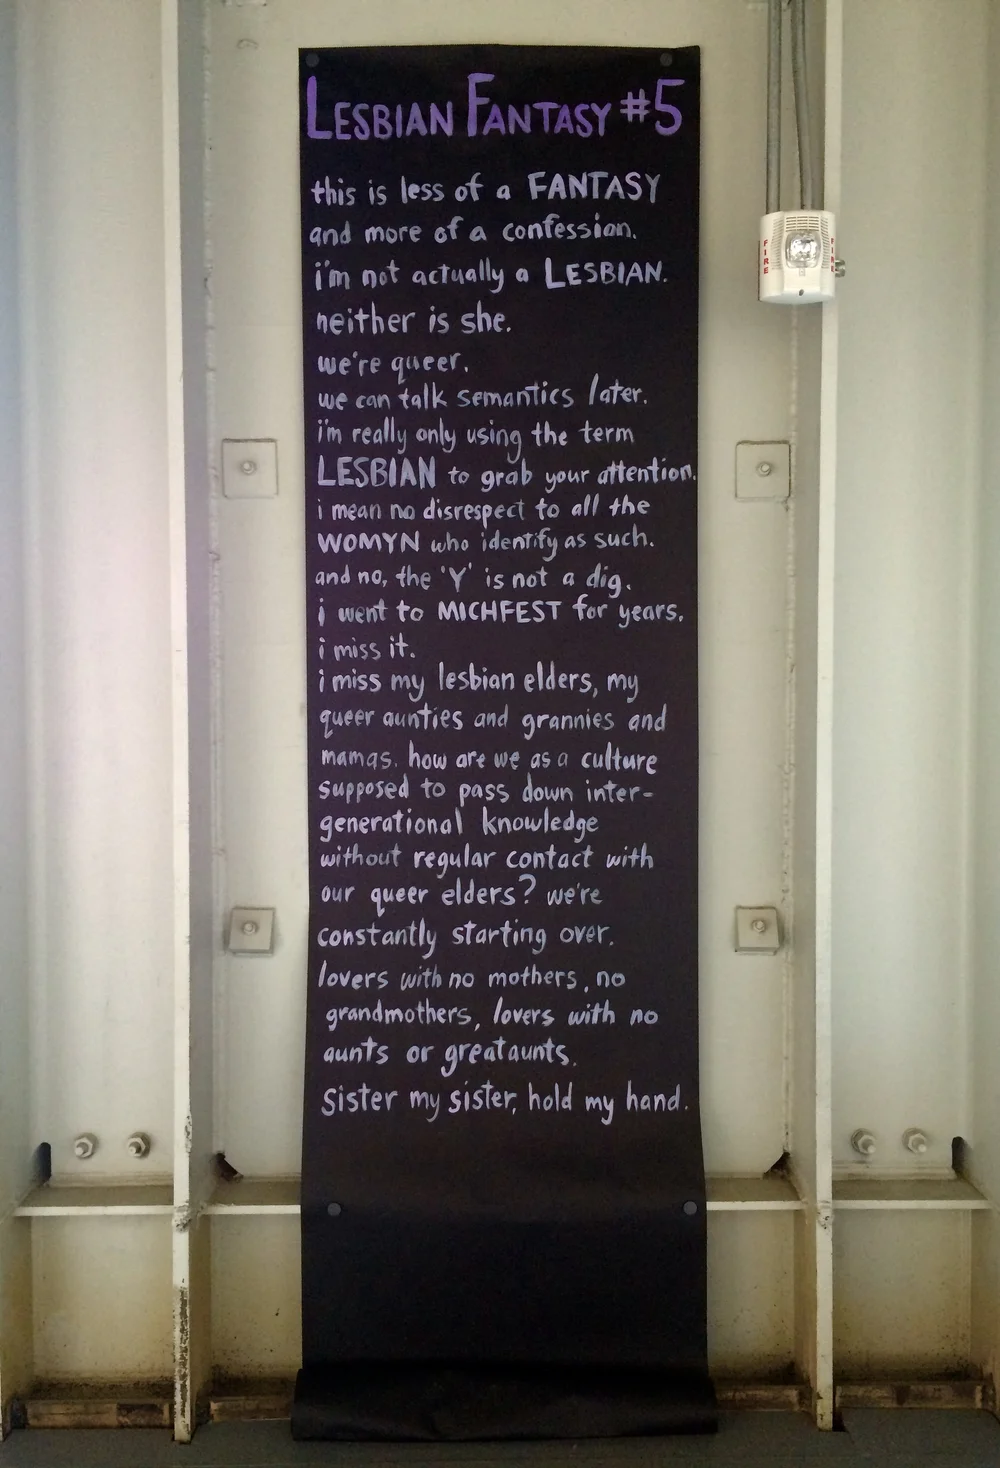 LESBIAN FANTASY #5
this is less of a FANTASY
and more of a confession.
i'm not actually a LESBIAN.
neither is she.
we're queer.
we can talk semantics later.
i'm really only using the term
LESBIAN to grab your attention.
i mean no disrespect to all the
WOMYN who identify as such.
and no, the 'Y' is not a dig.
i went to MICHFEST for years.
i miss it.
i miss my lesbian elders, my
queer aunties and grannies and
mamas. how are we as a culture
supposed to pass down inter-
generational knowledge
without regular contact with
our queer elders? we're
constantly starting over.
lovers with no mothers, no
grandmothers, lovers with no
aunts or great aunts.
Sister my sister, hold my hand.
FIRE
FIRE